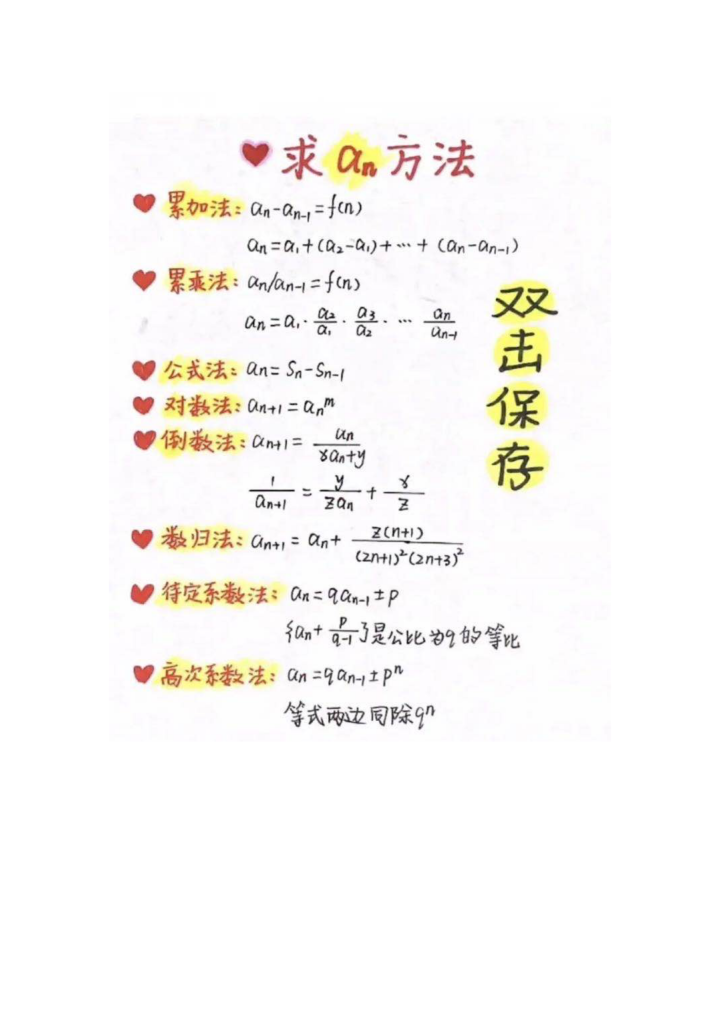 求an方法
累加法: an-an-1=f(n)
an=a1+(a2-a1)+…+(an-an-1)
累乘法: an/an-1=f(n)
an=a1·a2/a1·a3/a2·…an/an-1
双击保存
公式法: an=Sn-Sn-1
对数法: an+1=an^m
倒数法: an+1=an/(xan+y)
1/an+1=y/(zan)+x/z
数归法: an+1=an+z(n+1)/((2n+1)²(2n+3)²)
待定系数法: an=qan-1±p
{an+p/(q-1)}是公比为q的等比
高次系数法: an=qan-1±p^n
等式两边同除q^n